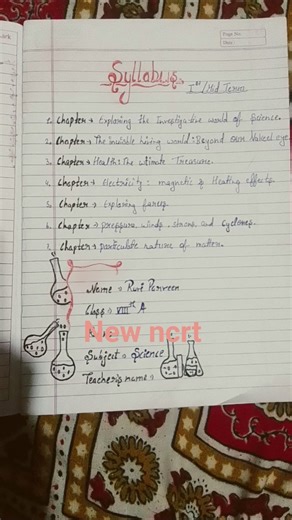 Page No:
Date:
Syllabus
Ist/Mid Term
1. Chapter → Exploring the Investigative world of Science.
2. Chapter → The invisible living world: Beyond our Naked eye
3. Chapter → Health: The ultimate Treasure.
4. Chapter → Electricity: magnetic & Heating effects.
5. Chapter → Exploring forces.
6. Chapter → pressure, winds, storms, and Cyclones.
7. Chapter → particulate nature of matter.
Name → Ruri Perveen
Class → VIIIth A
New ncrt
Subject → Science
Teacher's name →